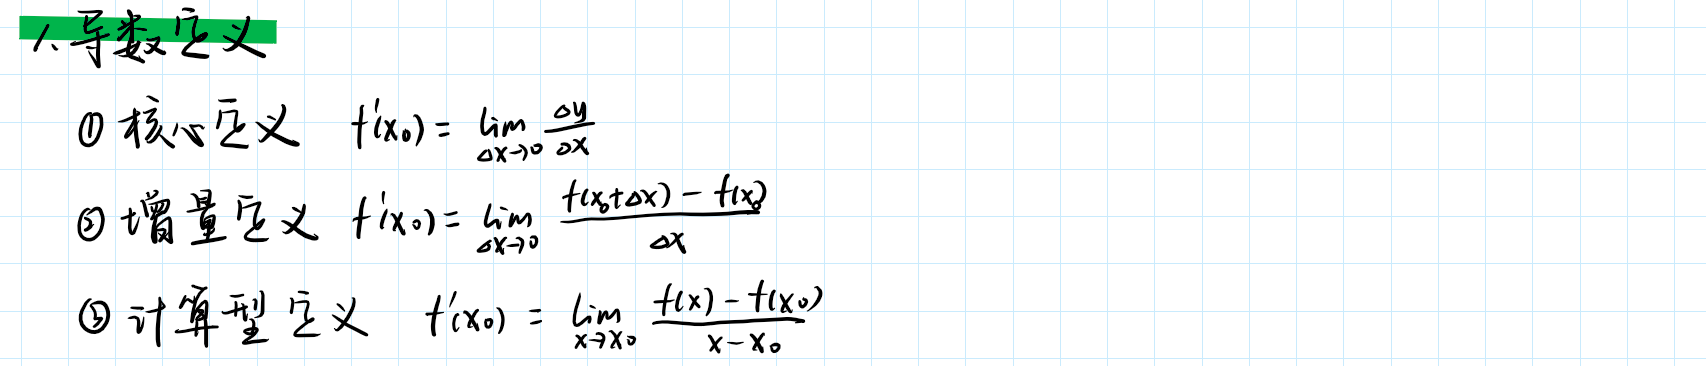 1. 导数定义
① 核心定义 f'(x₀) = lim_{Δx→0} Δy/Δx
② 增量定义 f'(x₀) = lim_{Δx→0} (f(x₀+Δx) - f(x₀))/Δx
③ 计算型定义 f'(x₀) = lim_{x→x₀} (f(x) - f(x₀))/(x - x₀)